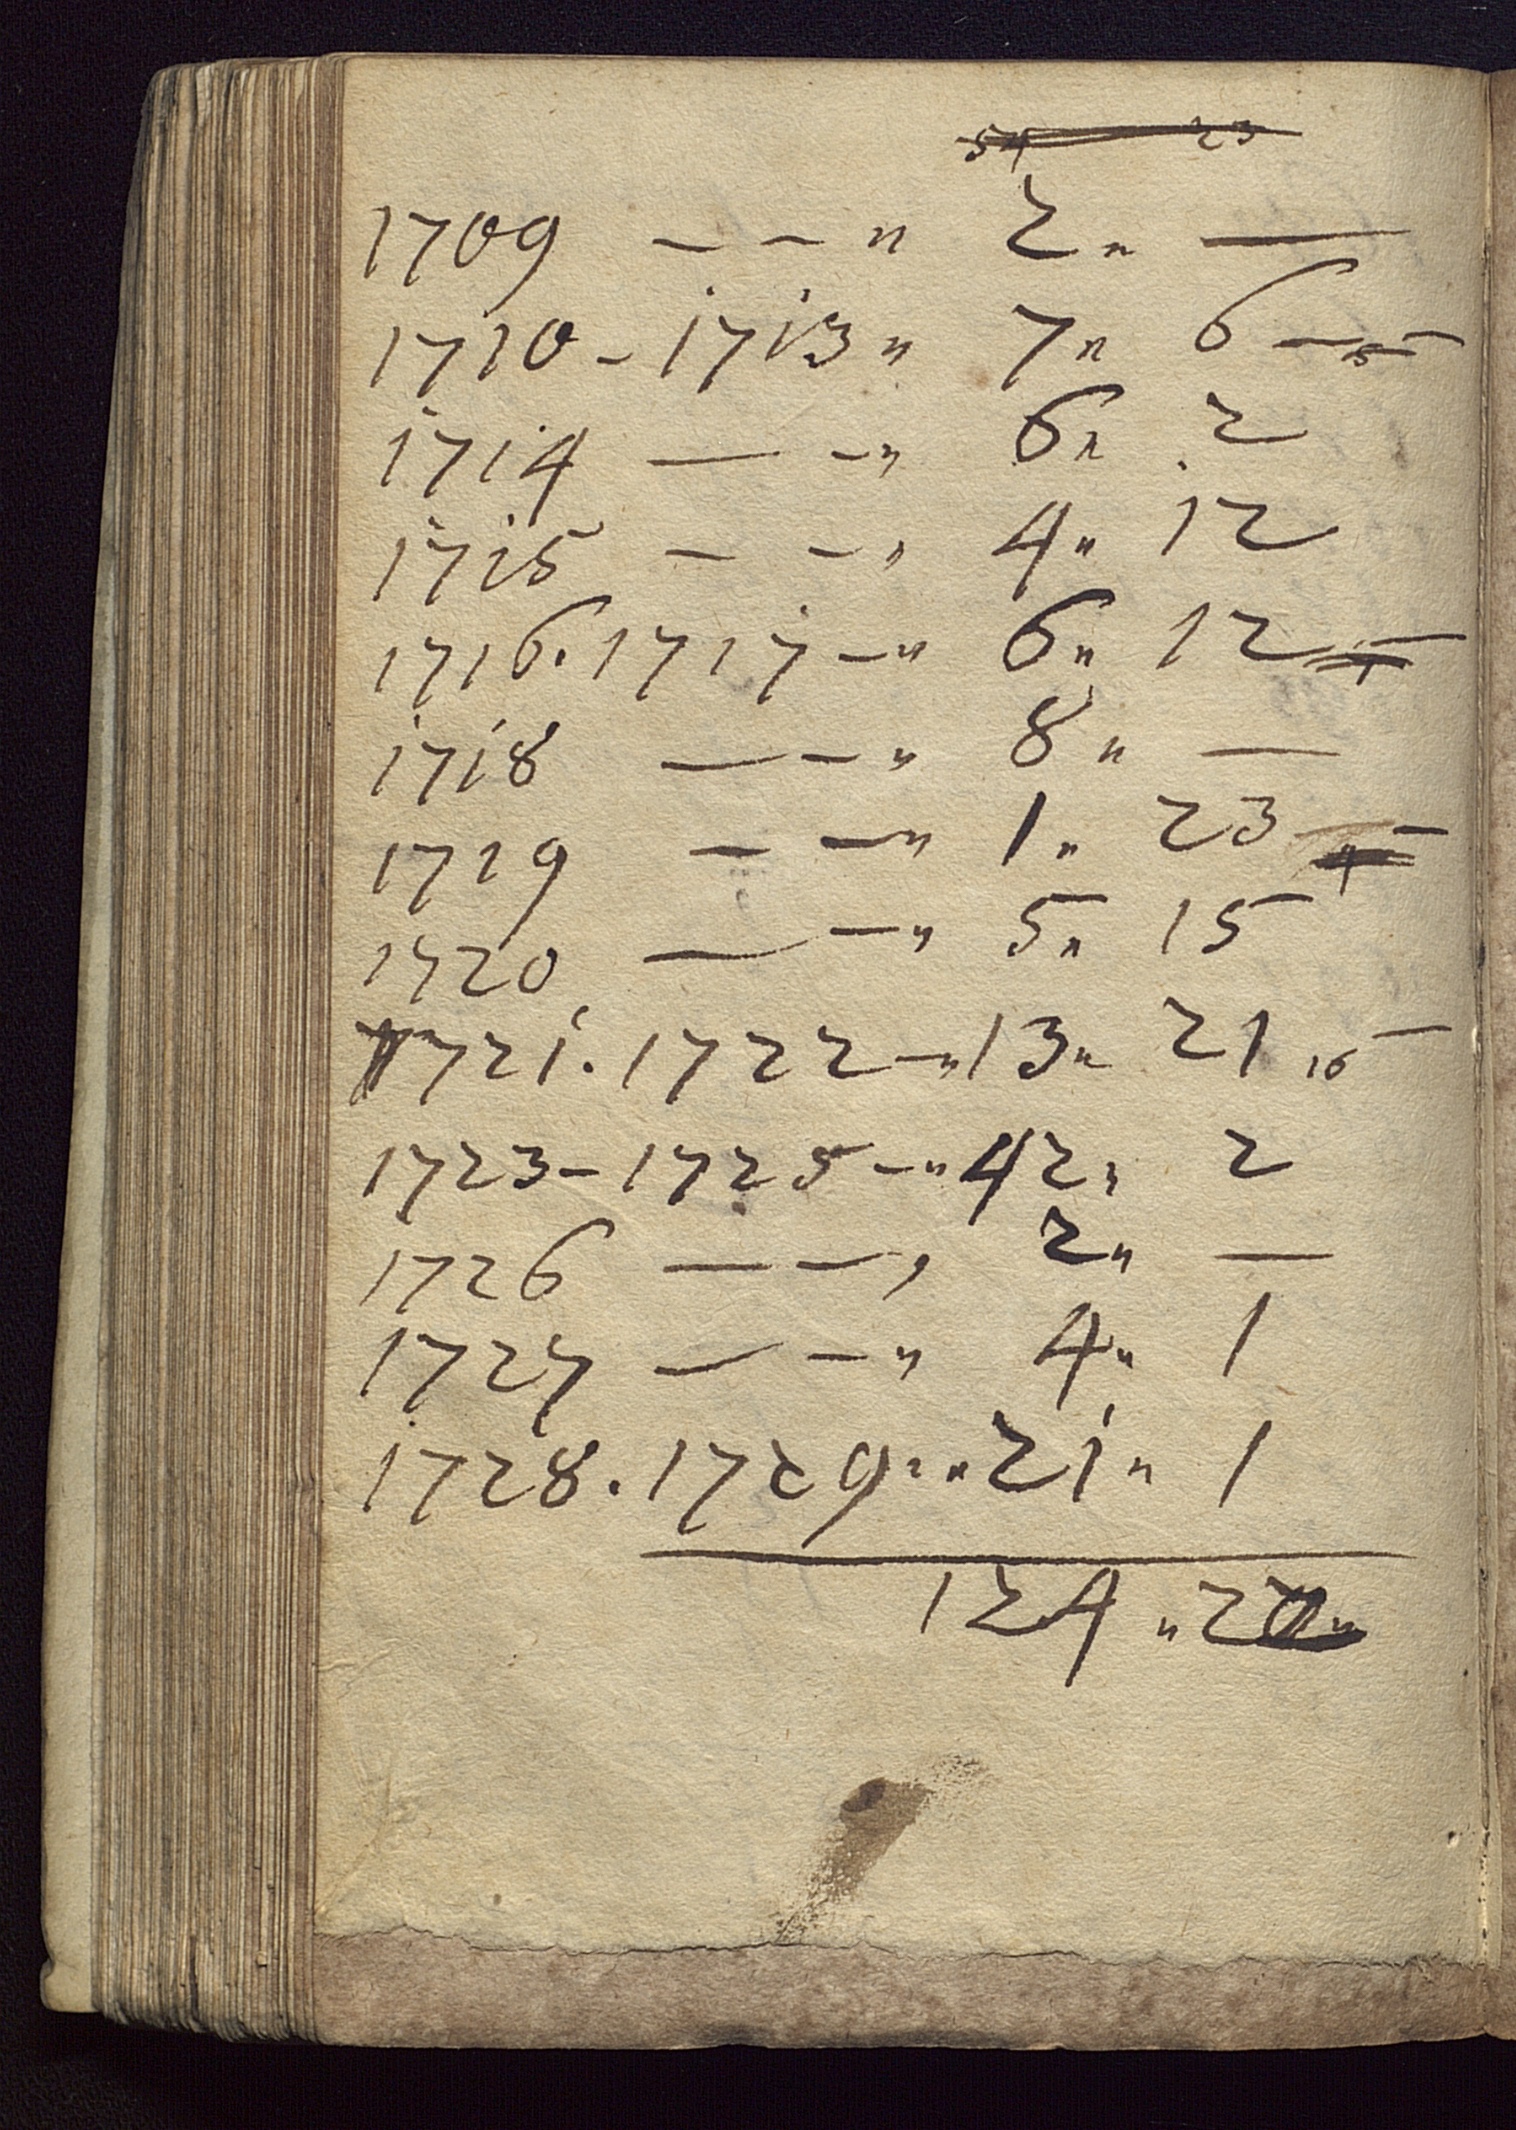 54 23
1709 — — „ 2 „ —
1710 - 1713 „ 7 „ 6 —
1714 — - „ 6 „ 2
1715 — - „ 4 „ 12
1716. 1717 — „ 6 „ 12 —
1718 — - „ 8 „ —
1719 — — „ 1 „ 23 —
1720 — — „ 5 „ 15
1721. 1722 — „ 13 „ 21 „ 16 —
1723 - 1725 - „ 42 „ 2
1726 — — , 2 „ —
1727 — - „ 4 „ 1
1728. 1729 „ „ 21 „ 1
124 „ 2